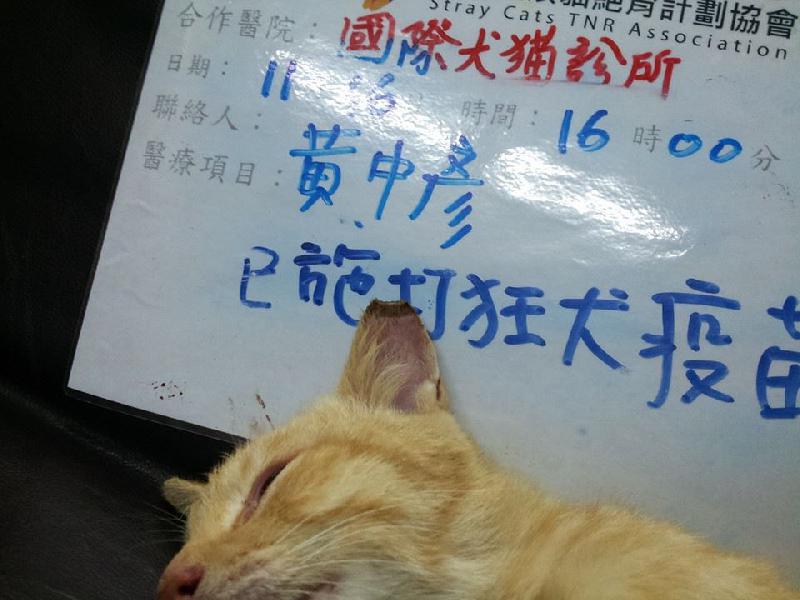 貓絕育計劃協會
Stray Cats TNR Association
合作醫院：國際犬猫診所
日期：11 16 時間：16時00分
聯絡人：黃申彥
醫療項目：
已施打狂犬疫苗